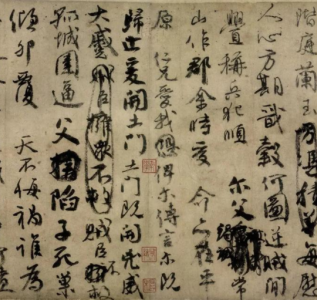 階庭蘭玉方憑積善每慰
人心方期戩穀何圖逆賊閒
釁稱兵犯順爾父竭誠常
山作郡余時受命亦在平
原仁兄愛我俾爾傳言爾既
歸止爰開土門土門既開兇威
大蹙賊臣擁眾不救
孤城圍逼父陷子死巢
傾卵覆天不悔禍誰為